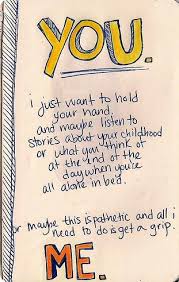 YOU.
i just want to hold
your hand,
and maybe listen to
stories about your childhood
or what you think of
at the end of the
day when you're
all alone in bed.
or maybe this is pathetic and all i
need to do is get a grip.
ME.